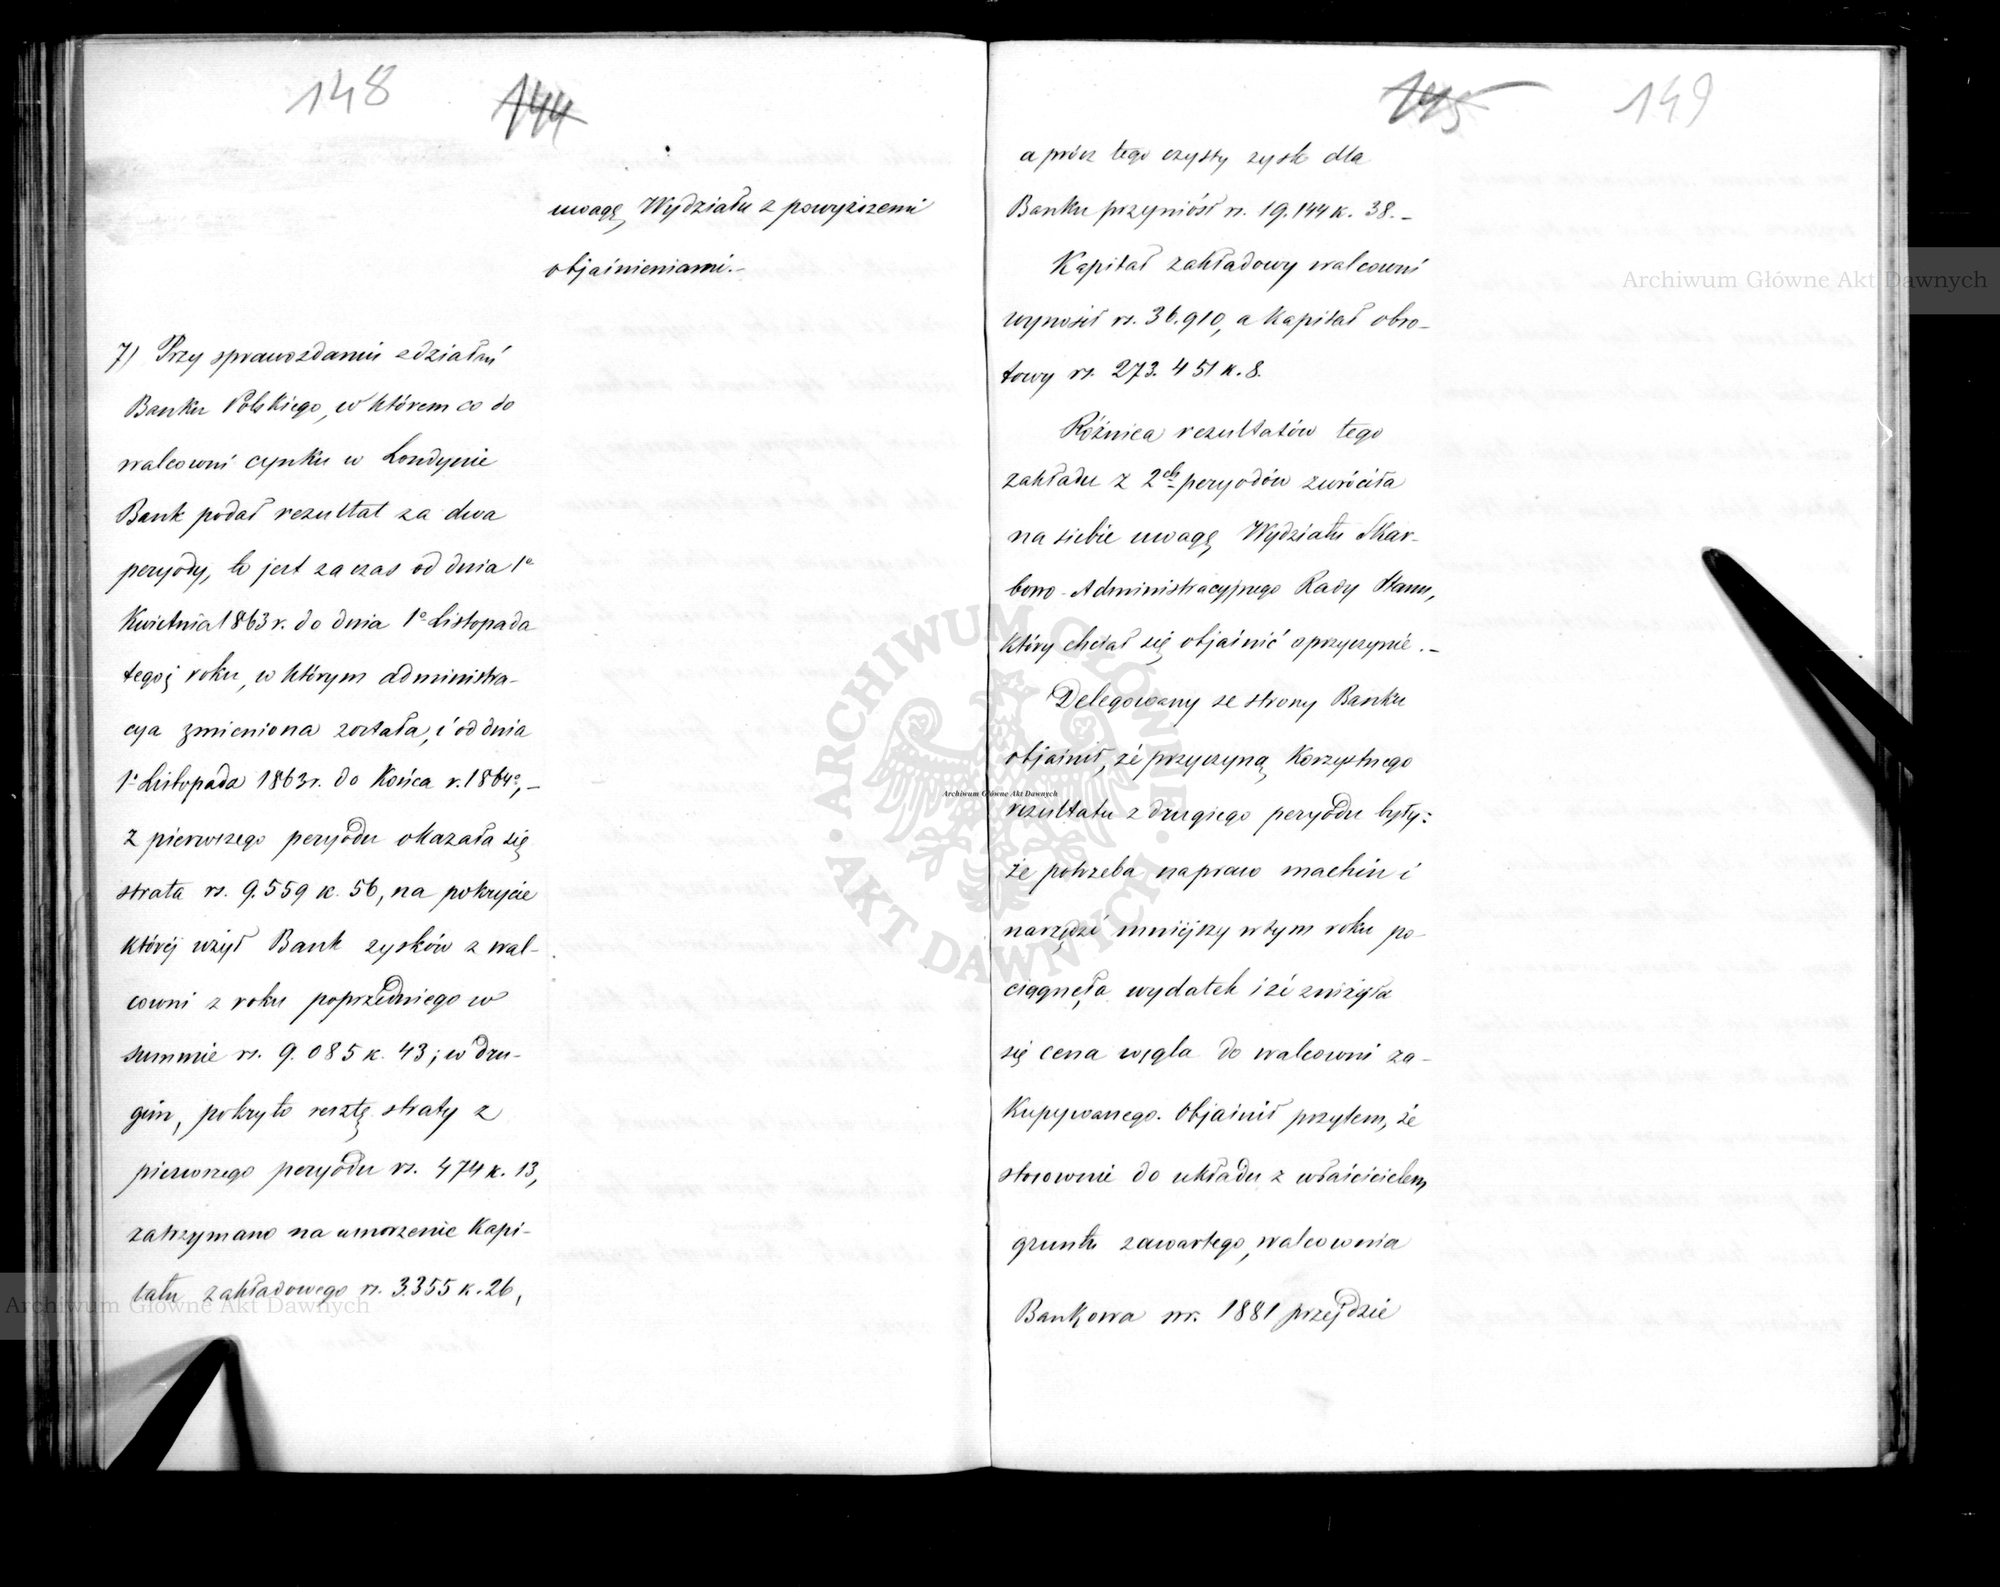 148
144
uwagę Wydziału z powyższemi
objaśnieniami.-
7) Przy sprawozdaniu z działań
Banku Polskiego, w którem co do
walcowni cynku w Londynie
Bank podał rezultat za dwa
peryody, to jest za czas od dnia 1o
Kwietnia 1863 r. do dnia 1o Listopada
tegoż roku, w którym administra-
cya zmieniona została, i od dnia
1o Listopada 1863 r. do Końca r. 1864o,-
z pierwszego peryodu okazała się
strata rs. 9.559 k. 56, na pokrycie
której użył Bank zysków z wal-
cowni z roku poprzedniego w
summie rs. 9.085 k. 43; w dru-
gim, pokryto resztę straty z
pierwszego peryodu rs. 474 k. 13,
zatrzymano na umorzenie Kapi-
tału zakładowego rs. 3.355 k. 26,
145
149
a prócz tego czysty zysk dla
Banku przyniósł rs. 19.144 k. 38.-
Kapitał zakładowy walcowni
wynosił rs. 36.910, a Kapitał obro-
towy rs. 273.451 k. 8.
Różnica rezultatów tego
zakładu z 2ch peryodów zwróciła
na siebie uwagę Wydziału Skar-
bowo-Administracyjnego Rady Stanu,
który chciał się objaśnić o przyczynie.-
Delegowany ze strony Banku
objaśnił, że przyczyną Korzystnego
rezultatu z drugiego peryodu były:
że potrzeba napraw machin i
narzędzi mniejszy w tym roku po-
ciągnęła wydatek i że zniżyła
się cena węgla do walcowni za-
Kupywanego. Objaśnił przytem, że
stosownie do układu z właścicielem
gruntu zawartego, walcownia
Bankowa w r. 1881 przejdzie
Archiwum Główne Akt Dawnych
Archiwum Główne Akt Dawnych
Archiwum Główne Akt Dawnych
ARCHIWUM GŁÓWNE AKT DAWNYCH